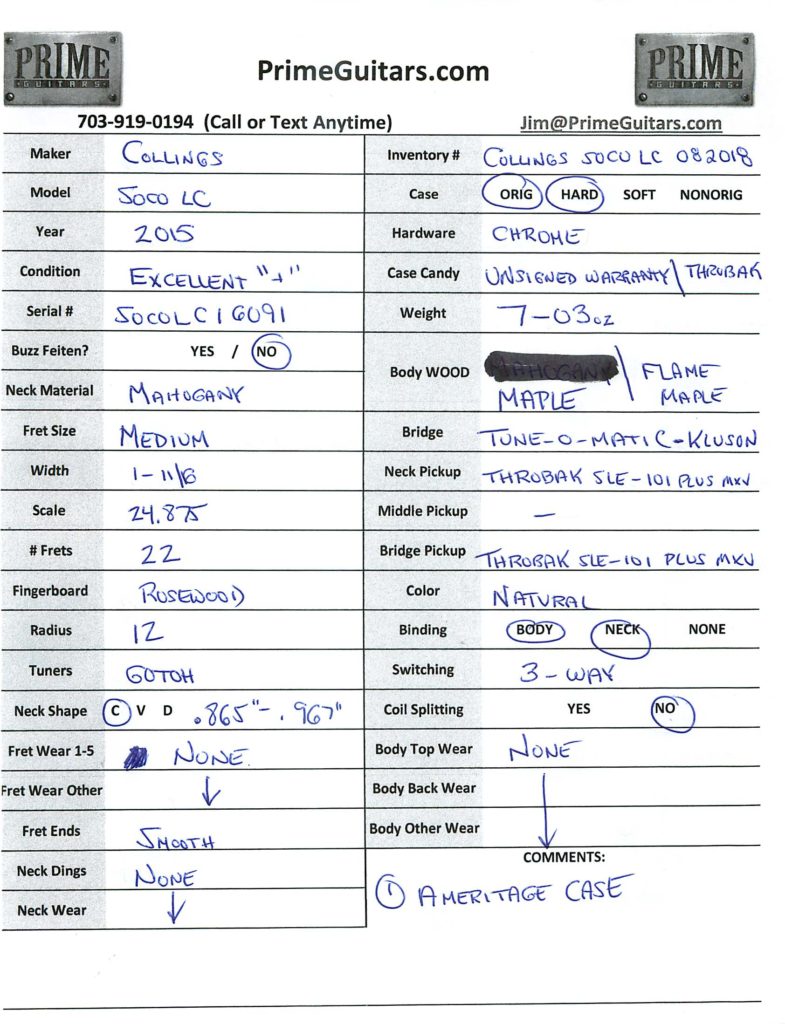 PRIME
GUITARS
PrimeGuitars.com
PRIME
GUITARS
703-919-0194 (Call or Text Anytime)
Jim@PrimeGuitars.com
Maker COLLINGS
Model SOCO LC
Year 2015
Condition EXCELLENT "+"
Serial # SOCOLC16091
Buzz Feiten? YES / NO
Neck Material MAHOGANY
Fret Size MEDIUM
Width 1-11/16
Scale 24.875
# Frets 22
Fingerboard ROSEWOOD
Radius 12
Tuners GOTOH
Neck Shape C V D .865"-.967"
Fret Wear 1-5 NONE
Fret Wear Other ↓
Fret Ends SMOOTH
Neck Dings NONE
Neck Wear ↓
Inventory # COLLINGS SOCO LC 082018
Case ORIG HARD SOFT NONORIG
Hardware CHROME
Case Candy UNSIGNED WARRANTY \ THROBAK
Weight 7-03oz
Body WOOD MAHOGANY
MAPLE \ FLAME
MAPLE
Bridge TUNE-O-MATIC-KLUSON
Neck Pickup THROBAK SLE-101 PLUS MXV
Middle Pickup —
Bridge Pickup THROBAK SLE-101 PLUS MXV
Color NATURAL
Binding BODY NECK NONE
Switching 3-WAY
Coil Splitting YES NO
Body Top Wear NONE
Body Back Wear
Body Other Wear ↓
COMMENTS:
① AMERITAGE CASE